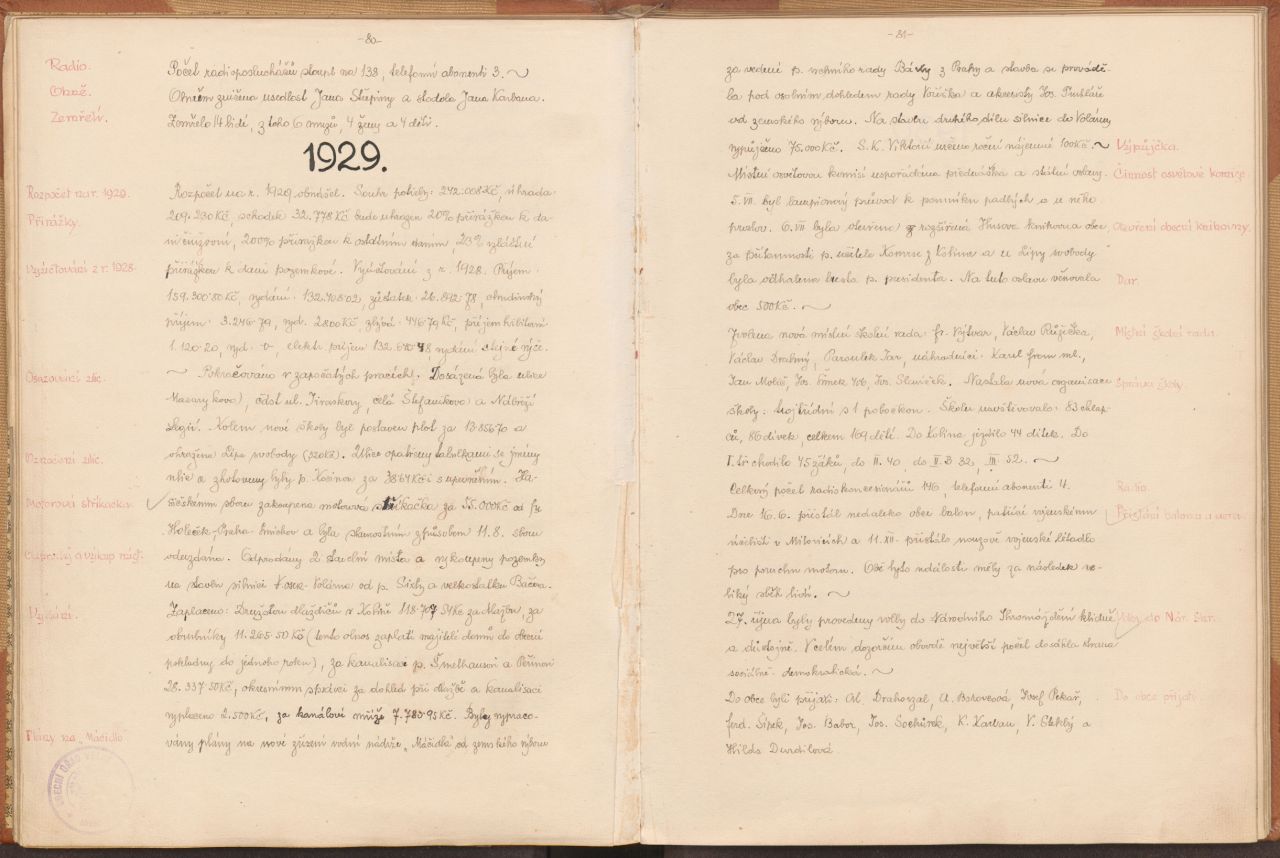 -80-
Radio.
Počet radioposluchačů stoupl na 138, telefonní abonenti 3.
Oheň.
Ohněm zničena usedlost Jana Štěpiny a stodola Jana Karbana.
Zemřelí.
Zemřelo 14 lidí, z toho 6 mužů, 4 ženy a 4 děti.
1929.
Rozpočet na r. 1929.
Rozpočet na r. 1929 obnášel. Souhr potřeby: 242.008 Kč, úhrada:
Přirážky.
209.230 Kč, schodek 32.778 Kč bude uhrazen 20% přirážkou k da-
ni činžovní, 200% přirážkou k ostatním daním, 23% zvláštní
Vyúčtování z r. 1928.
přirážkou k dani pozemkové. Vyúčtování z r. 1928. Příjem:
159.300.80 Kč, vydání: 132.408.02, zůstatek: 26.892.78, obecní
příjem: 3.246.79, vyd. 2800 Kč, zbývá: 446.79 Kč, příjem hřbitovní
1.120.20, vyd. 0, elektr. příjem 132.640.48, vydání stejné výše.
Osazování ulic.
Pokračováno v započatých pracích. Dosázená byla ulice
Masarykova, část ul. Jiráskovy, celá Štefanikova a Nábřeží
legií. Kolem nové školy byl postaven plot za 13.856.70 a
Označení ulic.
ohrazena Lípa svobody (520 Kč). Ulice opatřeny tabulkami se jmény
ulic a zhotoveny byly p. Kosinou za 3864 Kč i s upevněním. Ha-
Motorová stříkačka.
sičskému sboru zakoupena motorová stříkačka za 55.000 Kč od fy
Holeček-Praha Smíchov a byla slavnostním způsobem 11.8. sboru
Odprodej a výkup nách.
odevzdána. Odprodány 2 stavební místa a vykoupeny pozemky
na stavbu silnici Kosek-Volárna od p. Sixty a velkostatku Bačova.
Vydání.
Zaplaceno: Družstvu dlaždičů v Kolíně 118.707.54 Kč za dlažbu, za
obrubníky 11.265.50 Kč (tento obnos zaplatí majitelé domů do obecní
pokladny do jednoho roku), za kanalisaci p. Šmelhausovi a Peřinovi
28.337.50 Kč, okresnímu správci za dohled při dlažbě a kanalisaci
vyplaceno 2.500 Kč, za kanálové mříže 7.783.95 Kč. Byly vypraco-
Plány na „Máčidlo
vány plány na nové zřízení vodní nádrže „Máčidla" od zemského výboru
-81-
za vedení p. vrchního rady Bárty z Prahy a stavba se prováde-
la pod osobním dohledem rady Voříška a akcesisty Jos. Pintláře
od zemského výboru. Na stavbu druhého dílu silnice do Volárny
vypůjčeno 75.000 Kč. S.K. Viktorii určeno roční nájemné 100 Kč.
Výpůjčka.
Místní osvětovou komisí uspořádána přednáška a státní oslavy.
Činnost osvětové komise
5.VII. byl lampionový průvod k pomníku padlých a u něho
proslov. 6.VII byla otevřena rozšířená Husova knihovna obce,
Otevření obecní knihovny.
za přítomnosti p. učitele Komrse z Kolína a u Lípy svobody
byla odhalena busta p. presidenta. Na tuto oslavu věnovala
Dar.
obec 500 Kč.
Zvolena nová místní školní rada: Fr. Výtvar, Václav Růžička,
Místní školní rada.
Václav Drahný, Paroulek Jar., náhradníci: Karel From ml.,
Jan Moláš, Jos. Šimek 406, Jos. Slavíček. Nastala nová organisace
Správa školy.
školy: trojtřídní s 1 pobočkou. Školu navštěvovalo: 83 chlap-
ců, 86 dívek celkem 169 dětí. Do Kolína jezdilo 44 dítek. Do
I. tř. chodilo 45 žáků, do II. 40, do II.B 32, III. 52.
Celkový počet radiokoncesionářů 146, telefonní abonenti 4.
Radio.
Dne 16.6. přistál nedaleko obce balon, patřící vojenskému
Přistání balonu a aera.
učilišti v Milovicích a 11.XII. přistálo nouzově vojenské letadlo
pro poruchu motoru. Obě tyto události měly za následek ve-
liký sběh lidí.
27. října byly provedeny volby do Národního Shromáždění klidně
Volby do Nár. Shr.
a důstojně. V celém dozorčím obvodě největší počet dosáhla strana
sociálně demokratická.
Do obce byli přijati: Al. Drahorzal, A. Borovcová, Josef Pekař,
Do obce přijati
Ferd. Šípek, Jos. Babor, Jos. Sochůrek, K. Karban, V. Stehlý a
Hilda Durdilová